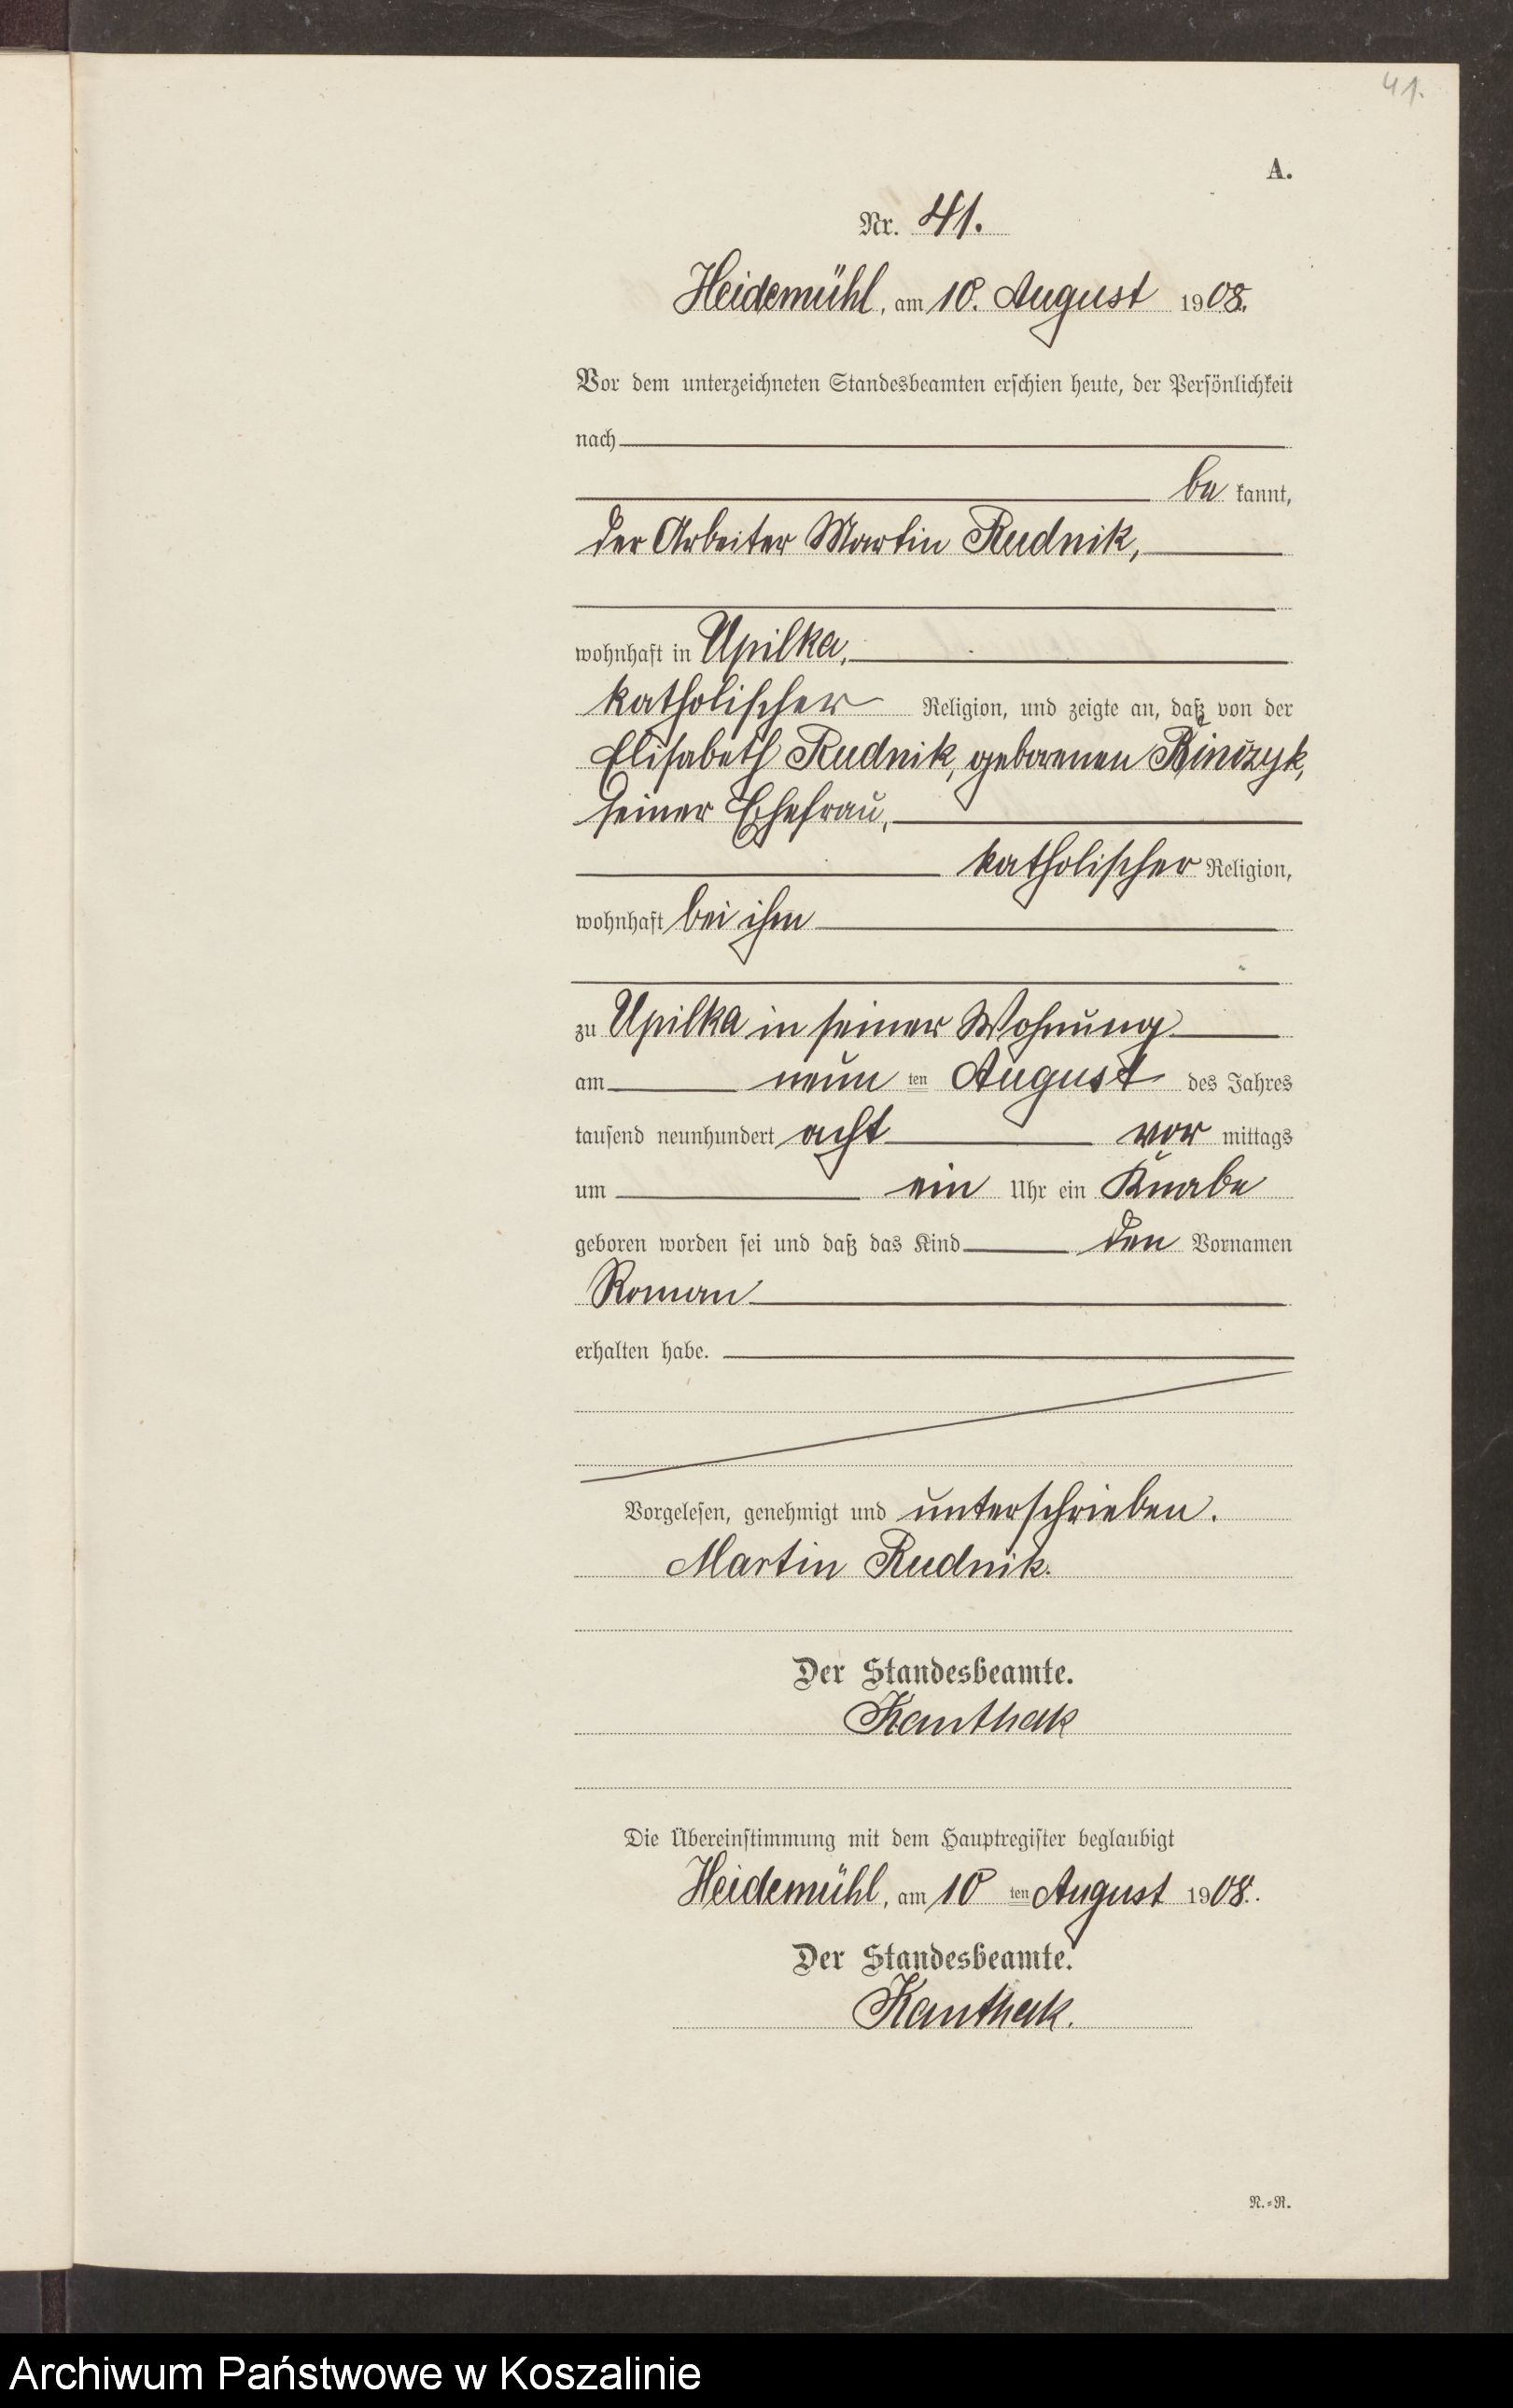 41.
A.
Nr. 41.
Heidemühl, am 10. August 1908.
Vor dem unterzeichneten Standesbeamten erschien heute, der Persönlichkeit
nach
be kannt,
der Arbeiter Martin Rudnik,
wohnhaft in Upilka,
katholischer Religion, und zeigte an, daß von der
Elisabeth Rudnik, geborenen
seiner Ehefrau,
katholischer Religion,
wohnhaft bei ihm
zu Upilka in seiner Wohnung
am neun ten August des Jahres
tausend neunhundert acht vor mittags
um ein Uhr ein Knabe
geboren worden sei und daß das Kind den Vornamen
Roman
erhalten habe.
Vorgelesen, genehmigt und unterschrieben.
Martin Rudnik.
Der Standesbeamte.
Kanthak
Die Übereinstimmung mit dem Hauptregister beglaubigt
Heidemühl, am 10 ten August 1908.
Der Standesbeamte.
Kanthak.
N.=R.
Archiwum Państwowe w Koszalinie